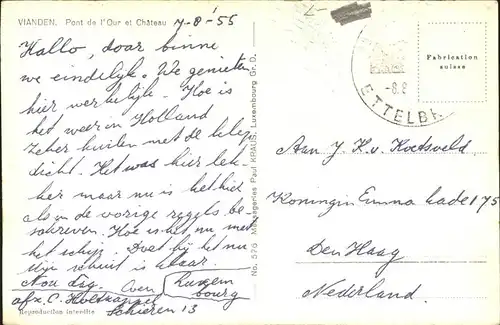 VIANDEN. Pont de l'Our et Château
7-8-'55
Hallo, daar binne
we eindelijk. We genieten
hier werkelijk. Hoe is
het weer in Holland
Zeker buiten met de klep
dicht. Het was hier lek-
ker maar nu is het hier
als in de vorige regels be-
schreven. Hoe is het nu met
het schip. Doet hij het nu
Mijn schuit is klaar.
Nou dag. Oven
afz. C. Holtkappel
Schieren 13
Luxem
bourg
Reproduction interdite
No. 576 Messageries Paul KRAUS, Luxembourg Gr. D.
Fabrication
suisse
-8.8
ETTELBR
Aan J. K. v. Koetsveld
Koningin Emma kade 175
Den Haag
Nederland.